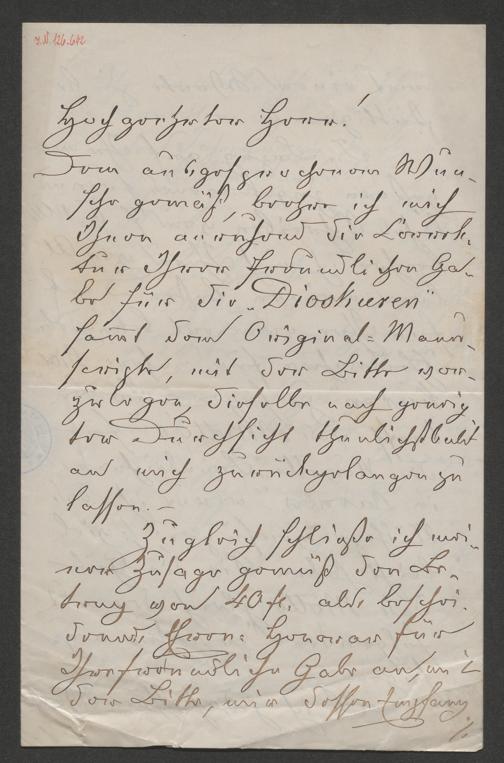 J.N. 126.642
Hochgeehrter Herr!
Dem ausgesprochenen Wun-
sche gemäß, beehre ich mich
Ihnen anruhend die Correk-
tur Ihrer freundlichen Ga-
be für die „Dioskuren"
samt dem Original-Manu-
scripte, mit der Bitte vor-
zulegen, dieselbe nach geneig-
ter Durchsicht thunlichst bald
an mich zurückgelangen zu
lassen. –
Zugleich schließe ich mei-
ner Zusage gemäß den Be-
trag von 40 fl. als beschei-
denes Ehren-Honorar für
Ihre freundliche Gabe an, mit
der Bitte, mir dessen Empfang
./.